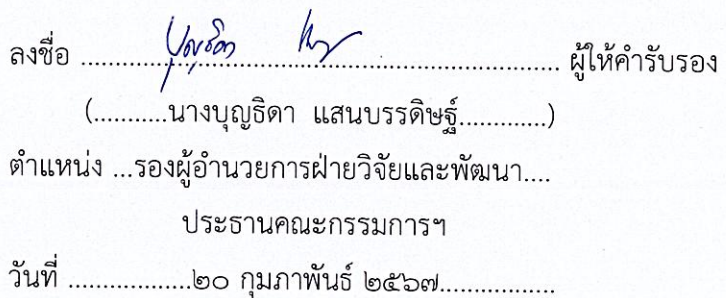 ลงชื่อ ........บุญธิดา........ ผู้ให้คำรับรอง
(...........นางบุญธิดา แสนบรรดิษฐ์.............)
ตำแหน่ง ...รองผู้อำนวยการฝ่ายวิจัยและพัฒนา....
ประธานคณะกรรมการฯ
วันที่ ..................๒๐ กุมภาพันธ์ ๒๕๖๗.................